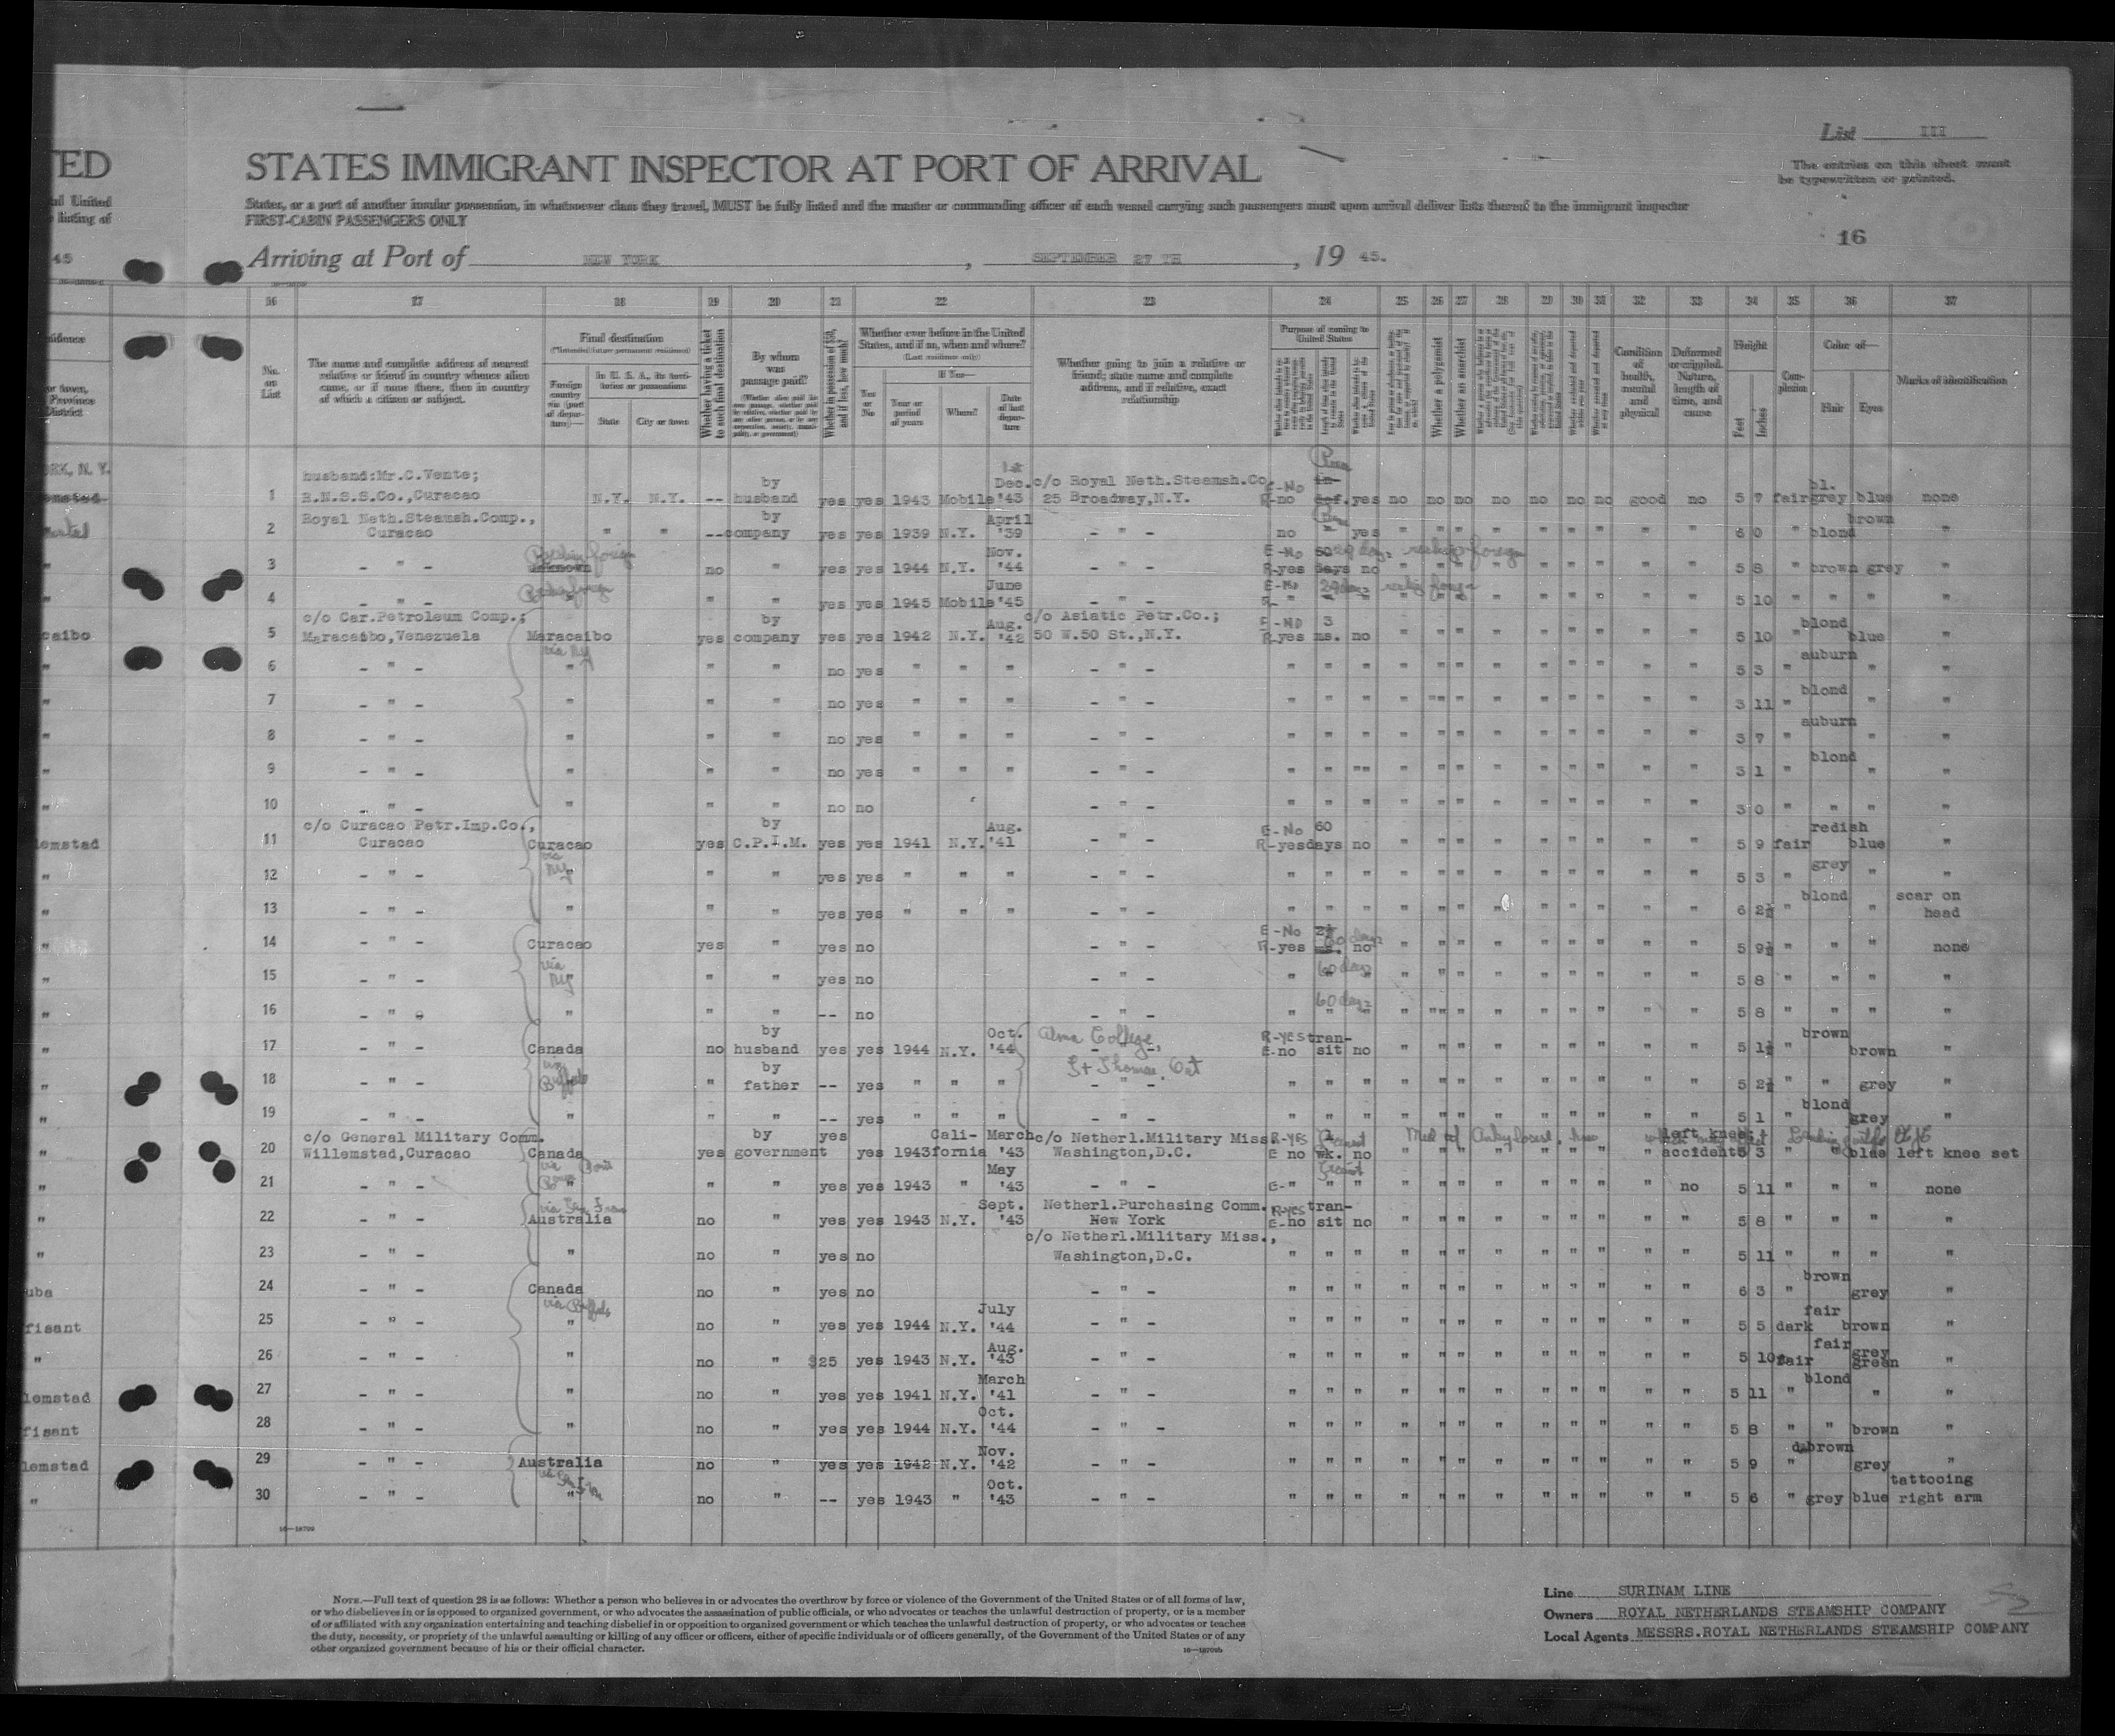 List III
TED STATES IMMIGRANT INSPECTOR AT PORT OF ARRIVAL
The entries on this sheet must
be typewritten or printed.
al United States, or a part of another insular possession, in whatsoever class they travel, MUST be fully listed and the master or commanding officer of each vessel carrying such passengers must upon arrival deliver lists thereof to the immigrant inspector
listing of FIRST-CABIN PASSENGERS ONLY
16
45 Arriving at Port of NEW YORK , SEPTEMBER 27 TH , 19 45.
16 17 18 19 20 21 22 23 24 25 26 27 28 29 30 31 32 33 34 35 36 37
No. on List
The name and complete address of nearest relative or friend in country whence alien came, or if none there, then in country of which a citizen or subject.
Final destination
In U. S. A., its territories or possessions
State City or town
Whether having a ticket to such final destination
By whom was passage paid?
Whether in possession of $50, and if less, how much?
Whether ever before in the United States, and if so, when and where?
If Yes—
Yes or No Year or period of years Where? Date of last departure
Whether going to join a relative or friend; state name and complete address, and if relative, exact relationship
Purpose of coming to United States
Whether a polygamist
Whether an anarchist
Condition of health, mental and physical
Deformed or crippled. Nature, length of time, and cause
Height
Feet Inches
Complexion
Color of—
Hair Eyes
Marks of identification
ORK, N. Y. husband:Mr.C.Vente; by 1st Dec. c/o Royal Neth.Steamsh.Co. E-No bl.
1 R.N.S.S.Co.,Curacao N.Y. N.Y. -- husband yes yes 1943 Mobile '43 25 Broadway,N.Y. R-no def. yes no no no no no no no good no 5 7 fair grey blue none
Royal Neth.Steamsh.Comp., by April brown
2 Curacao " " -- company yes yes 1939 N.Y. '39 - " - no " yes " " " " " " " " " 6 0 " blond "
Nov. E-No 29 days reship foreign
3 - " - unknown no " yes yes 1944 N.Y. '44 - " - R-yes days no " " " " " " " " " 5 8 " brown grey "
June E-No 29 days reship foreign
4 - " - " " " yes yes 1945 Mobile '45 - " - R- " " " " " " " " " " " " 5 10 " " " "
c/o Car.Petroleum Comp.; by Aug. c/o Asiatic Petr.Co.; E-No 3 blond
caibo 5 Maracaibo,Venezuela Maracaibo yes company yes yes 1942 N.Y. '42 50 W.50 St.,N.Y. R-yes ms. no " " " " " " " " " 5 10 " blue "
via NY auburn
" 6 - " - " " " no yes " " " - " - " " " " " " " " " " " " 5 3 " " "
blond
" 7 - " - " " " no yes " " " - " - " " " " "" " " " " " " " 3 11 " " "
auburn
" 8 - " - " " " no yes " " " - " - " " " " " " " " " " " " 3 7 " " "
blond
" 9 - " - " " " no yes " " " - " - " " "" " " " " " " " " " 3 1 " " "
" 10 - " - " " " no no - " - " " " " " " " " " " " " 3 0 " " " "
c/o Curacao Petr.Imp.Co., by Aug. E-No 60 redish
lemstad 11 Curacao Curacao yes C.P.I.M. yes yes 1941 N.Y. '41 - " - R-yes days no " " " " " " " " " 5 9 fair blue "
via NY grey
" 12 - " - " " " yes yes " " " - " - " " " " " " " " " " " " 5 3 " " "
blond scar on
" 13 - " - " " " yes yes " " " - " - " " " " " " " " " " " " 6 2½ " " head
E-No 2½ 60 days
" 14 - " - Curacao yes " yes no - " - R-yes ms. no " " " " " " " " " 5 9½ " " " none
via NY 60 days
" 15 - " - " " " yes no - " - " " " " " " " " " " " " 5 8 " " " "
60 days
" 16 - " - " " " -- no - " - " " " " "" " " " " " " " 5 8 " " " "
by Oct. Alma College, R-yes tran- brown
" 17 - " - Canada no husband yes yes 1944 N.Y. '44 - " - E-no sit no " " " " " " " " " 5 1½ " brown "
via Buffalo by St Thomas, Ont
" 18 - " - " " father -- yes " " " - " - " " " " " " " " " " " " 5 2½ " " grey "
blond
" 19 - " - " " " -- yes " " " - " - " " " " " " " " " " " " 5 1 " grey "
c/o General Military Comm. by yes Cali- March c/o Netherl.Military Miss. R-YES 1 left knee;
" 20 Willemstad,Curacao Canada yes government yes 1943 fornia '43 Washington,D.C. E no wk. no " " " " " " " " accident 5 3 " " blue left knee set
May
" 21 - " - " " " yes yes 1943 " '43 - " - E-" " " " " " " " " " " no 5 11 " " " none
via San Fran Sept. Netherl.Purchasing Comm. R-yes tran-
" 22 - " - Australia no " yes yes 1943 N.Y. '43 New York E-no sit no " " " " " " " " " 5 8 " " " "
c/o Netherl.Military Miss.,
" 23 - " - " no " yes no Washington,D.C. " " " " " " " " " " " " 5 11 " " " "
brown
uba 24 - " - Canada no " yes no - " - " " " " " " " " " " " " 6 3 " grey "
via Buffalo July fair
fisant 25 - " - " no " yes yes 1944 N.Y. '44 - " - " " " " " " " " " " " " 5 5 dark brown "
Aug. fair grey
" 26 - " - " no " $25 yes 1943 N.Y. '43 - " - " " " " " " " " " " " " 5 10 fair green "
March blond
lemstad 27 - " - " no " yes yes 1941 N.Y. '41 - " - " " " " " " " " " " " " 5 11 " " "
Oct.
fisant 28 - " - " no " yes yes 1944 N.Y. '44 - " - " " " " " " " " " " " " 5 8 " " brown "
Nov. brown
lemstad 29 - " - Australia no " yes yes 1942 N.Y. '42 - " - " " " " " " " " " " " " 5 9 " grey "
via San Fran Oct. tattooing
" 30 - " - " no " -- yes 1943 " '43 - " - " " " " " " " " " " " " 5 6 " grey blue right arm
16—18709
NOTE.—Full text of question 28 is as follows: Whether a person who believes in or advocates the overthrow by force or violence of the Government of the United States or of all forms of law,
or who disbelieves in or is opposed to organized government, or who advocates the assassination of public officials, or who advocates or teaches the unlawful destruction of property, or is a member
of or affiliated with any organization entertaining and teaching disbelief in or opposition to organized government or which teaches the unlawful destruction of property, or who advocates or teaches
the duty, necessity, or propriety of the unlawful assaulting or killing of any officer or officers, either of specific individuals or of officers generally, of the Government of the United States or of any
other organized government because of his or their official character.
Line SURINAM LINE
Owners ROYAL NETHERLANDS STEAMSHIP COMPANY
Local Agents MESSRS.ROYAL NETHERLANDS STEAMSHIP COMPANY